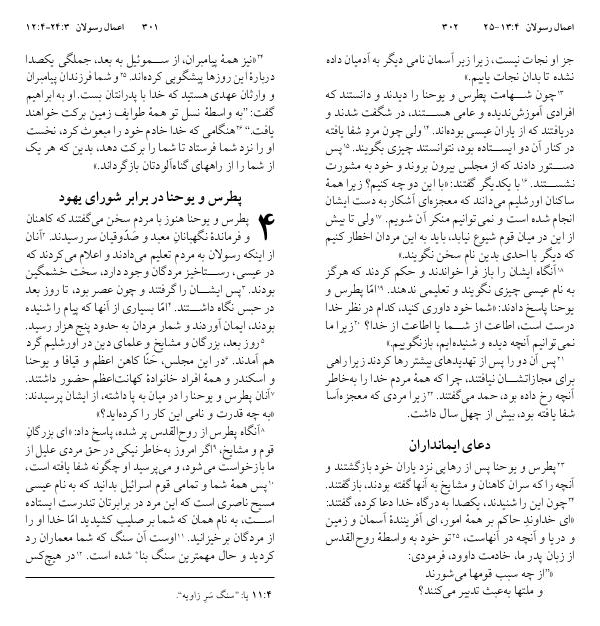 اعمال رسولان ۲۴:۳-۱۲:۴
۳۰۱
۲۴«نیز همهٔ پیامبران، از سموئیل به بعد، جملگی یکصدا
دربارهٔ این روزها پیشگویی کرده‌اند. ۲۵و شما فرزندان پیامبران
و وارثان عهدی هستید که خدا با پدرانتان بست. او به ابراهیم
گفت: ”به واسطهٔ نسل تو همهٔ طوایف زمین برکت خواهند
یافت.“ ۲۶هنگامی که خدا خادم خود را مبعوث کرد، نخست
او را نزد شما فرستاد تا شما را برکت دهد، بدین که هر یک
از شما را از راههای گناه‌آلودتان بازگرداند.»
پطرس و یوحنا در برابر شورای یهود
۴ پطرس و یوحنا هنوز با مردم سخن می‌گفتند که کاهنان
و فرماندهٔ نگهبانانِ معبد و صَدّوقیان سررسیدند. ۲آنان
از اینکه رسولان به مردم تعلیم می‌دادند و اعلام می‌کردند که
در عیسی، رستاخیز مردگان وجود دارد، سخت خشمگین
بودند. ۳پس ایشان را گرفتند و چون عصر بود، تا روز بعد
در حبس نگاه داشتند. ۴امّا بسیاری از آنها که پیام را شنیده
بودند، ایمان آوردند و شمار مردان به حدود پنج هزار رسید.
۵روز بعد، بزرگان و مشایخ و علمای دین در اورشلیم گرد
هم آمدند. ۶در این مجلس، حَنّا کاهن اعظم و قیافا و یوحنا
و اسکندر و همهٔ افراد خانوادهٔ کهانت‌اعظم حضور داشتند.
۷آنان پطرس و یوحنا را در میان به پا داشته، از ایشان پرسیدند:
«به چه قدرت و نامی این کار را کرده‌اید؟»
۸آنگاه پطرس از روح‌القدس پر شده، پاسخ داد: «ای بزرگانِ
قوم و مشایخ، ۹اگر امروز به‌خاطر نیکی در حق مردی علیل از
ما بازخواست می‌شود، و می‌پرسید او چگونه شفا یافته است،
۱۰پس همهٔ شما و تمامی قوم اسرائیل بدانید که به نام عیسی
مسیح ناصری است که این مرد در برابرتان تندرست ایستاده
است، به نام همان که شما بر صلیب کشیدید امّا خدا او را
از مردگان برخیزانید. ۱۱اوست آن سنگ که شما معماران رد
کردید و حال مهمترین سنگ بنا* شده است. ۱۲در هیچ‌کس
۱۱:۴ یا: ”سنگ سَرِ زاویه“.
اعمال رسولان ۱۳:۴-۲۵
۳۰۲
جز او نجات نیست، زیرا زیر آسمان نامی دیگر به آدمیان داده
نشده تا بدان نجات یابیم.»
۱۳چون شهامت پطرس و یوحنا را دیدند و دانستند که
افرادی آموزش‌ندیده و عامی هستند، در شگفت شدند و
دریافتند که از یاران عیسی بوده‌اند. ۱۴ولی چون مردِ شفا یافته
در کنار آن دو ایستاده بود، نتوانستند چیزی بگویند. ۱۵پس
دستور دادند که از مجلس بیرون بروند و خود به مشورت
نشستند. ۱۶با یکدیگر گفتند: «با این دو چه کنیم؟ زیرا همهٔ
ساکنان اورشلیم می‌دانند که معجزه‌ای آشکار به دست ایشان
انجام شده است و نمی‌توانیم منکر آن شویم. ۱۷ولی تا بیش
از این در میان قوم شیوع نیابد، باید به این مردان اخطار کنیم
که دیگر با احدی بدین نام سخن نگویند.»
۱۸آنگاه ایشان را باز فرا خواندند و حکم کردند که هرگز
به نام عیسی چیزی نگویند و تعلیمی ندهند. ۱۹امّا پطرس و
یوحنا پاسخ دادند: «شما خود داوری کنید، کدام در نظر خدا
درست است، اطاعت از شما یا اطاعت از خدا؟ ۲۰زیرا ما
نمی‌توانیم آنچه دیده و شنیده‌ایم، بازنگوییم.»
۲۱پس آن دو را پس از تهدیدهای بیشتر رها کردند زیرا راهی
برای مجازاتشان نیافتند، چرا که همهٔ مردم خدا را به‌خاطر
آنچه رخ داده بود، حمد می‌گفتند. ۲۲زیرا مردی که معجزه‌آسا
شفا یافته بود، بیش از چهل سال داشت.
دعای ایمانداران
۲۳پطرس و یوحنا پس از رهایی نزد یاران خود بازگشتند و
آنچه را که سران کاهنان و مشایخ به آنها گفته بودند، بازگفتند.
۲۴چون این را شنیدند، یکصدا به درگاه خدا دعا کرده، گفتند:
«ای خداوندِ حاکم بر همهٔ امور، ای آفرینندهٔ آسمان و زمین
و دریا و آنچه در آنهاست، ۲۵تو خود به واسطهٔ روح‌القدس
از زبان پدر ما، خادمت داوود، فرمودی:
«”از چه سبب قومها می‌شورند
و ملتها به‌عبث تدبیر می‌کنند؟